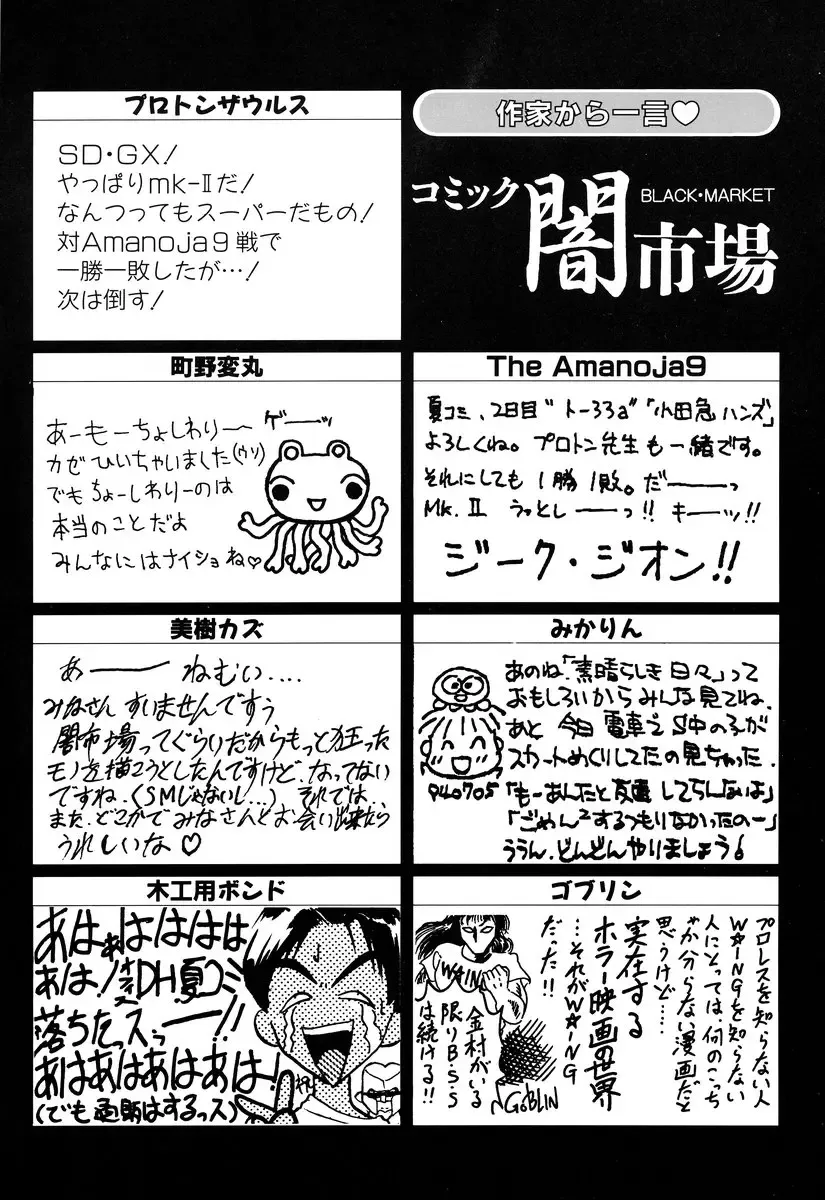 作家から一言♡
コミック
闇市場
BLACK・MARKET
プロトンザウルス
SD・GX!
やっぱりmk-Ⅱだ!
なんつってもスーパーだもの!
対Amanoja9戦で
一勝一敗したが…!
次は倒す!
The Amanoja9
夏コミ、2日目"トー33a"「小田急ハンズ」
よろしくね。プロトン先生も一緒です。
それにしても1勝1敗。だ――っ
Mk.Ⅱ うっとし――っ!! キーッ!!
ジーク・ジオン!!
町野変丸
あーもーちょしわりー
ゲーーッ
カゼひいちゃいました(ウソ)
でもちょーしわりーのは
本当のことだよ
みんなにはナイショね♡
みかりん
あのね「素晴らしき日々」って
おもしろいからみんな見てね.
あと 今日 電車で S中の子が
スカートめくりしてたの見ちゃった.
「もーあんたと友達してらんないよ」
「ごめん²するつもりなかったのー」
ううん.どんどんやりましょう。
940705
美樹カズ
あ―― ねむい....
みなさん すいませんですぅ
闇市場ってぐらいだからもっと狂った
モノを描こうとしたんですけど、なってない
ですね.(SMじゃないし...) それでは、
また、どこかでみなさんとお会い出来たら
うれしいな♡
ゴブリン
プロレスを知らない人
W★INGを知らない
人にとっては、何のこっち
ゃか分らない漫画だと
思うけど……
実在する
ホラー映画の世界
…それがW★ING
だった!!
金村がいる
限りB・S・S
は続ける!!
WING
GOBLIN
木工用ボンド
あはぁははははは
あは!DH夏コミ
落ちたっスっーー!!
あはあはあはあは!
(でも通販はするっス)